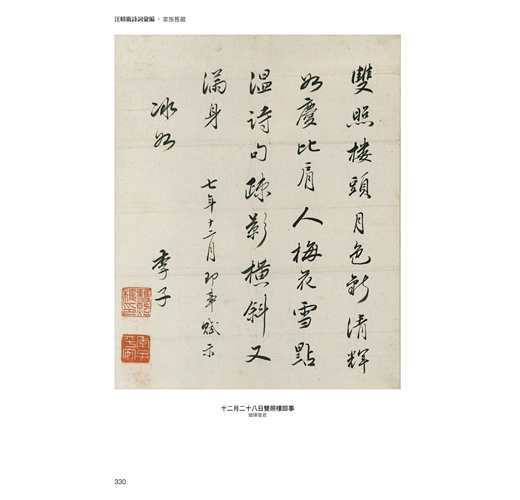 汪精衛詩詞彙編 · 家族舊藏
雙照樓頭月色新清輝
如慶比肩人梅花雪點
溫詩句疎影橫斜又
滿身 七年十二月即事賦示
冰如 季子
十二月二十八日雙照樓即事
贈陳璧君
330